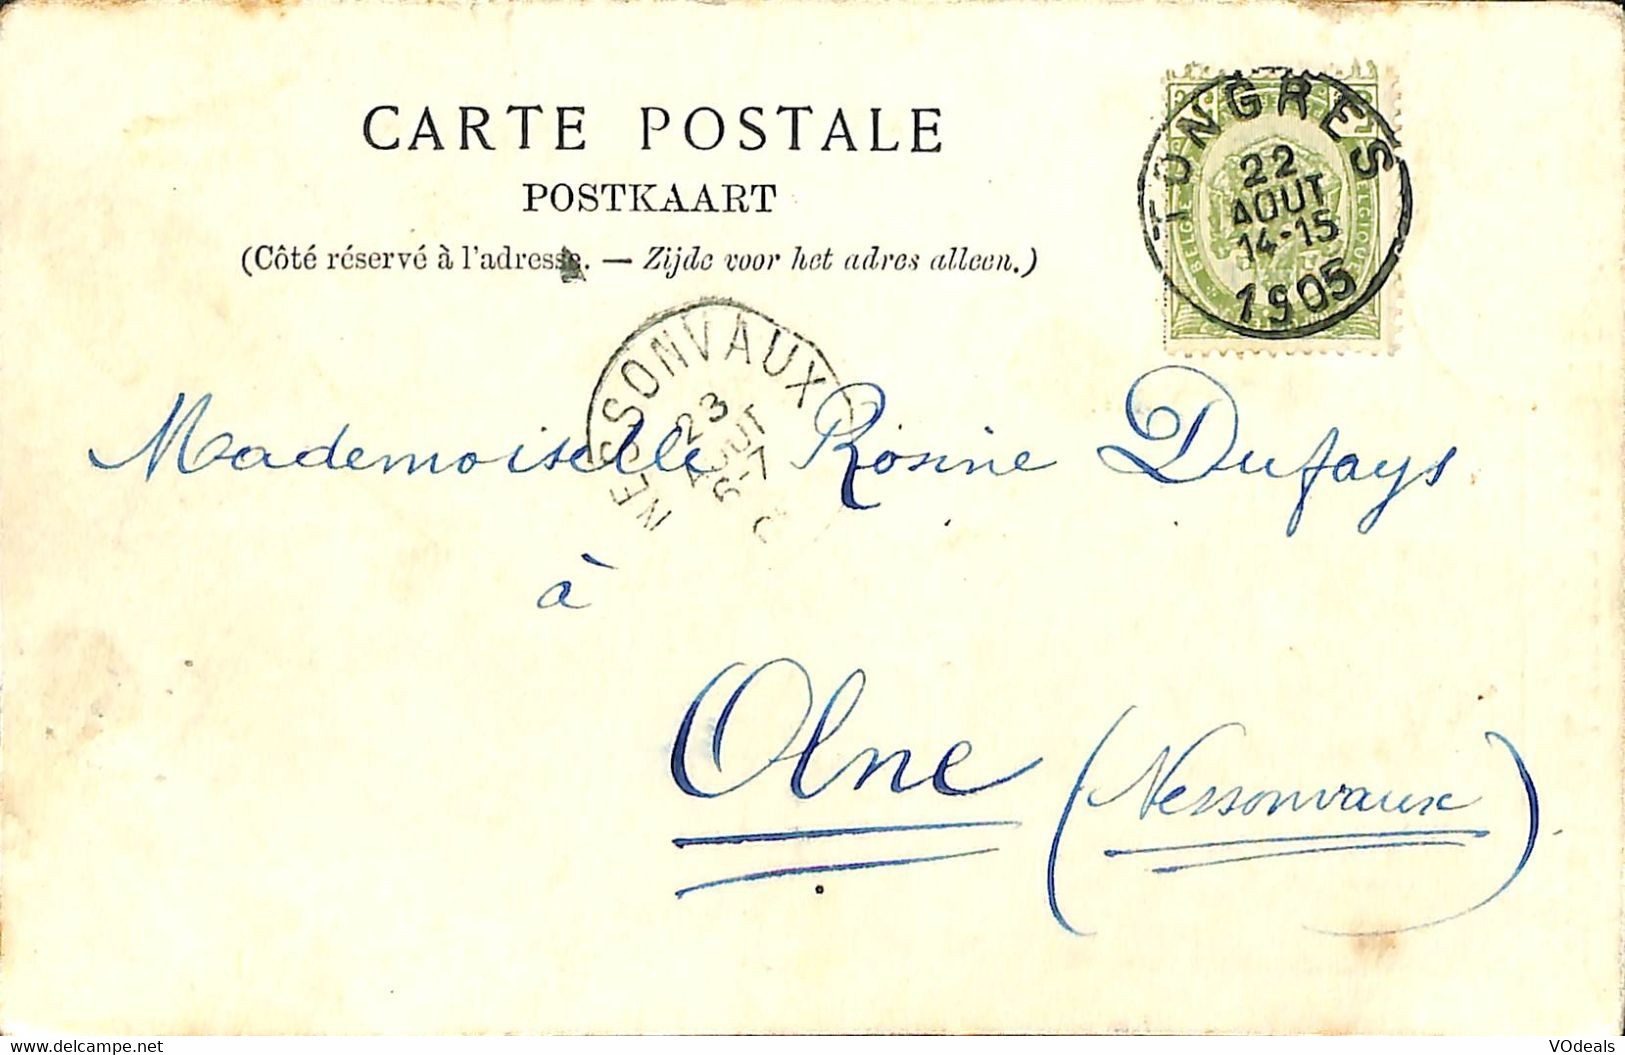 CARTE POSTALE
POSTKAART
(Côté réservé à l'adresse. — Zijde voor het adres alleen.)
TONGRES
22
AOUT
14-15
1905
BELGIQUE
NESSONVAUX
23
AOUT
6-7
Mademoiselle Rosine Dufays
à
Olne (Nessonvaux)
www.delcampe.net
VOdeals